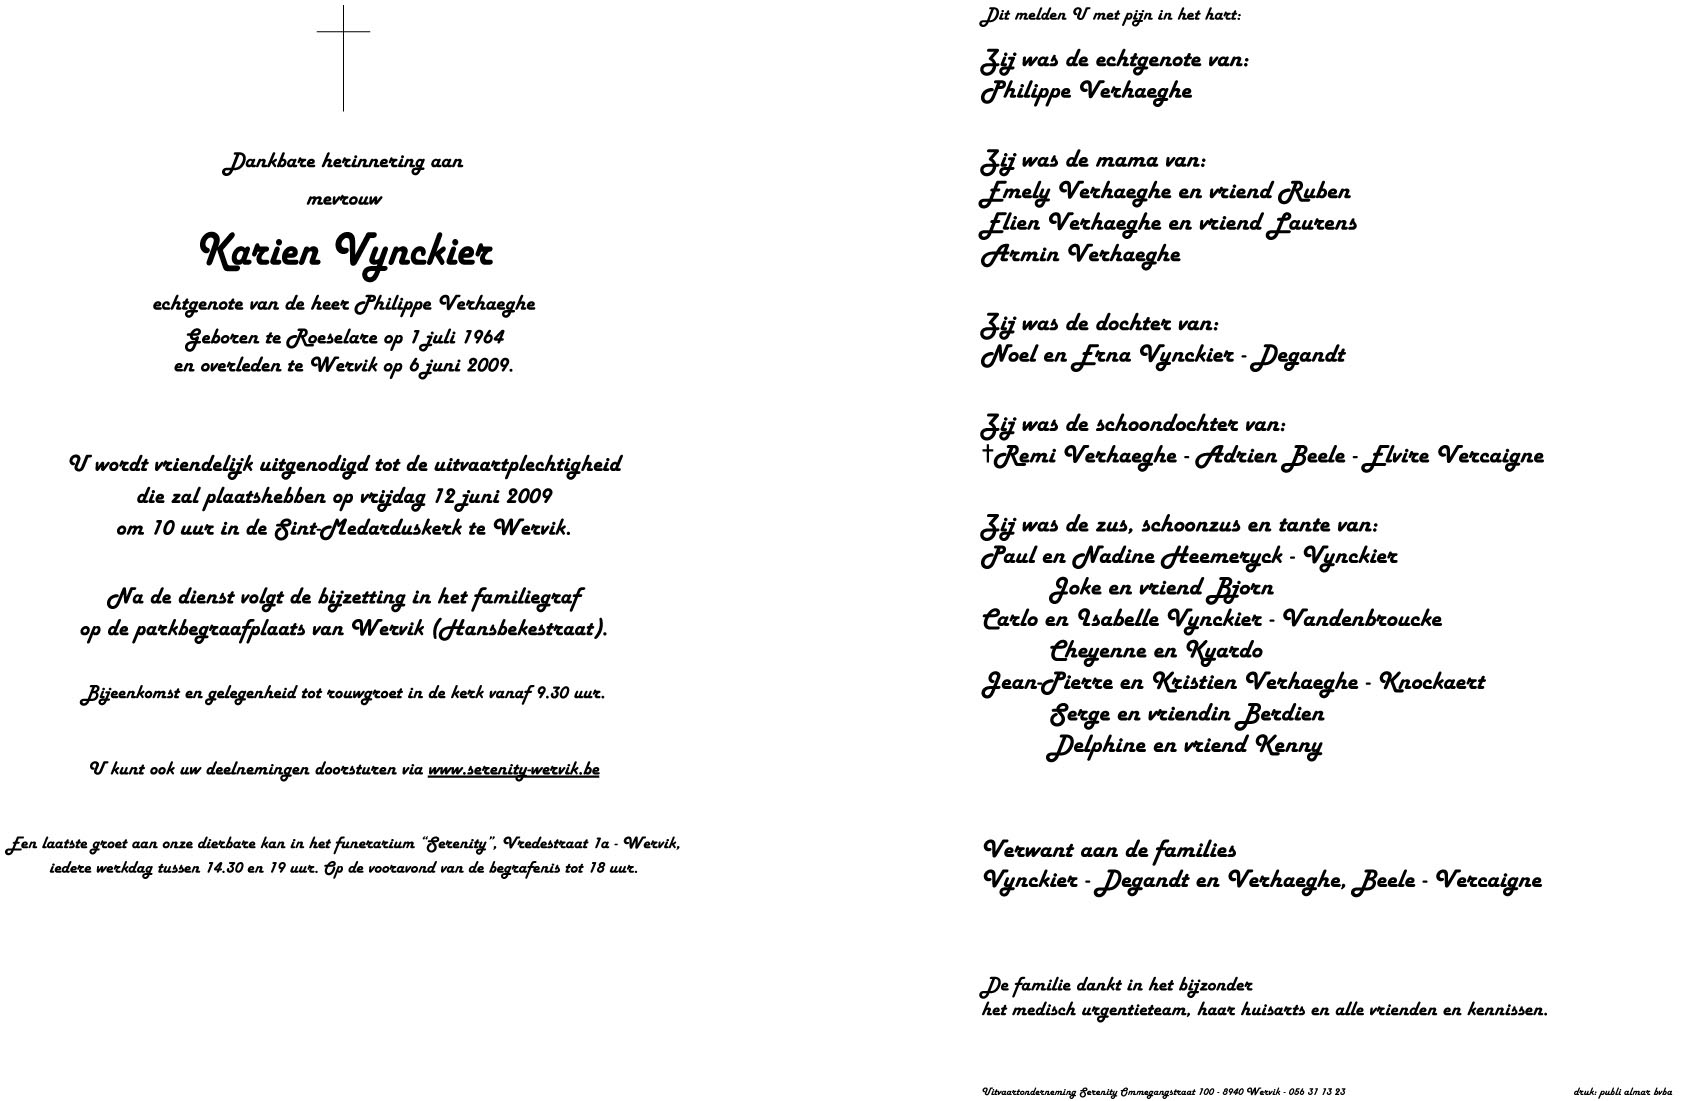 Dankbare herinnering aan
mevrouw
Karien Vynckier
echtgenote van de heer Philippe Verhaeghe
Geboren te Roeselare op 1 juli 1964
en overleden te Wervik op 6 juni 2009.
U wordt vriendelijk uitgenodigd tot de uitvaartplechtigheid
die zal plaatshebben op vrijdag 12 juni 2009
om 10 uur in de Sint-Medarduskerk te Wervik.
Na de dienst volgt de bijzetting in het familiegraf
op de parkbegraafplaats van Wervik (Hansbekestraat).
Bijeenkomst en gelegenheid tot rouwgroet in de kerk vanaf 9.30 uur.
U kunt ook uw deelnemingen doorsturen via www.serenity-wervik.be
Een laatste groet aan onze dierbare kan in het funerarium “Serenity”, Vredestraat 1a - Wervik,
iedere werkdag tussen 14.30 en 19 uur. Op de vooravond van de begrafenis tot 18 uur.
Dit melden U met pijn in het hart:
Zij was de echtgenote van:
Philippe Verhaeghe
Zij was de mama van:
Emely Verhaeghe en vriend Ruben
Elien Verhaeghe en vriend Laurens
Armin Verhaeghe
Zij was de dochter van:
Noel en Erna Vynckier - Degandt
Zij was de schoondochter van:
†Remi Verhaeghe - Adrien Beele - Elvire Vercaigne
Zij was de zus, schoonzus en tante van:
Paul en Nadine Heemeryck - Vynckier
Joke en vriend Bjorn
Carlo en Isabelle Vynckier - Vandenbroucke
Cheyenne en Kyardo
Jean-Pierre en Kristien Verhaeghe - Knockaert
Serge en vriendin Berdien
Delphine en vriend Kenny
Verwant aan de families
Vynckier - Degandt en Verhaeghe, Beele - Vercaigne
De familie dankt in het bijzonder
het medisch urgentieteam, haar huisarts en alle vrienden en kennissen.
Uitvaartonderneming Serenity Ommegangstraat 100 - 8940 Wervik - 056 31 13 23
druk: publi almar bvba